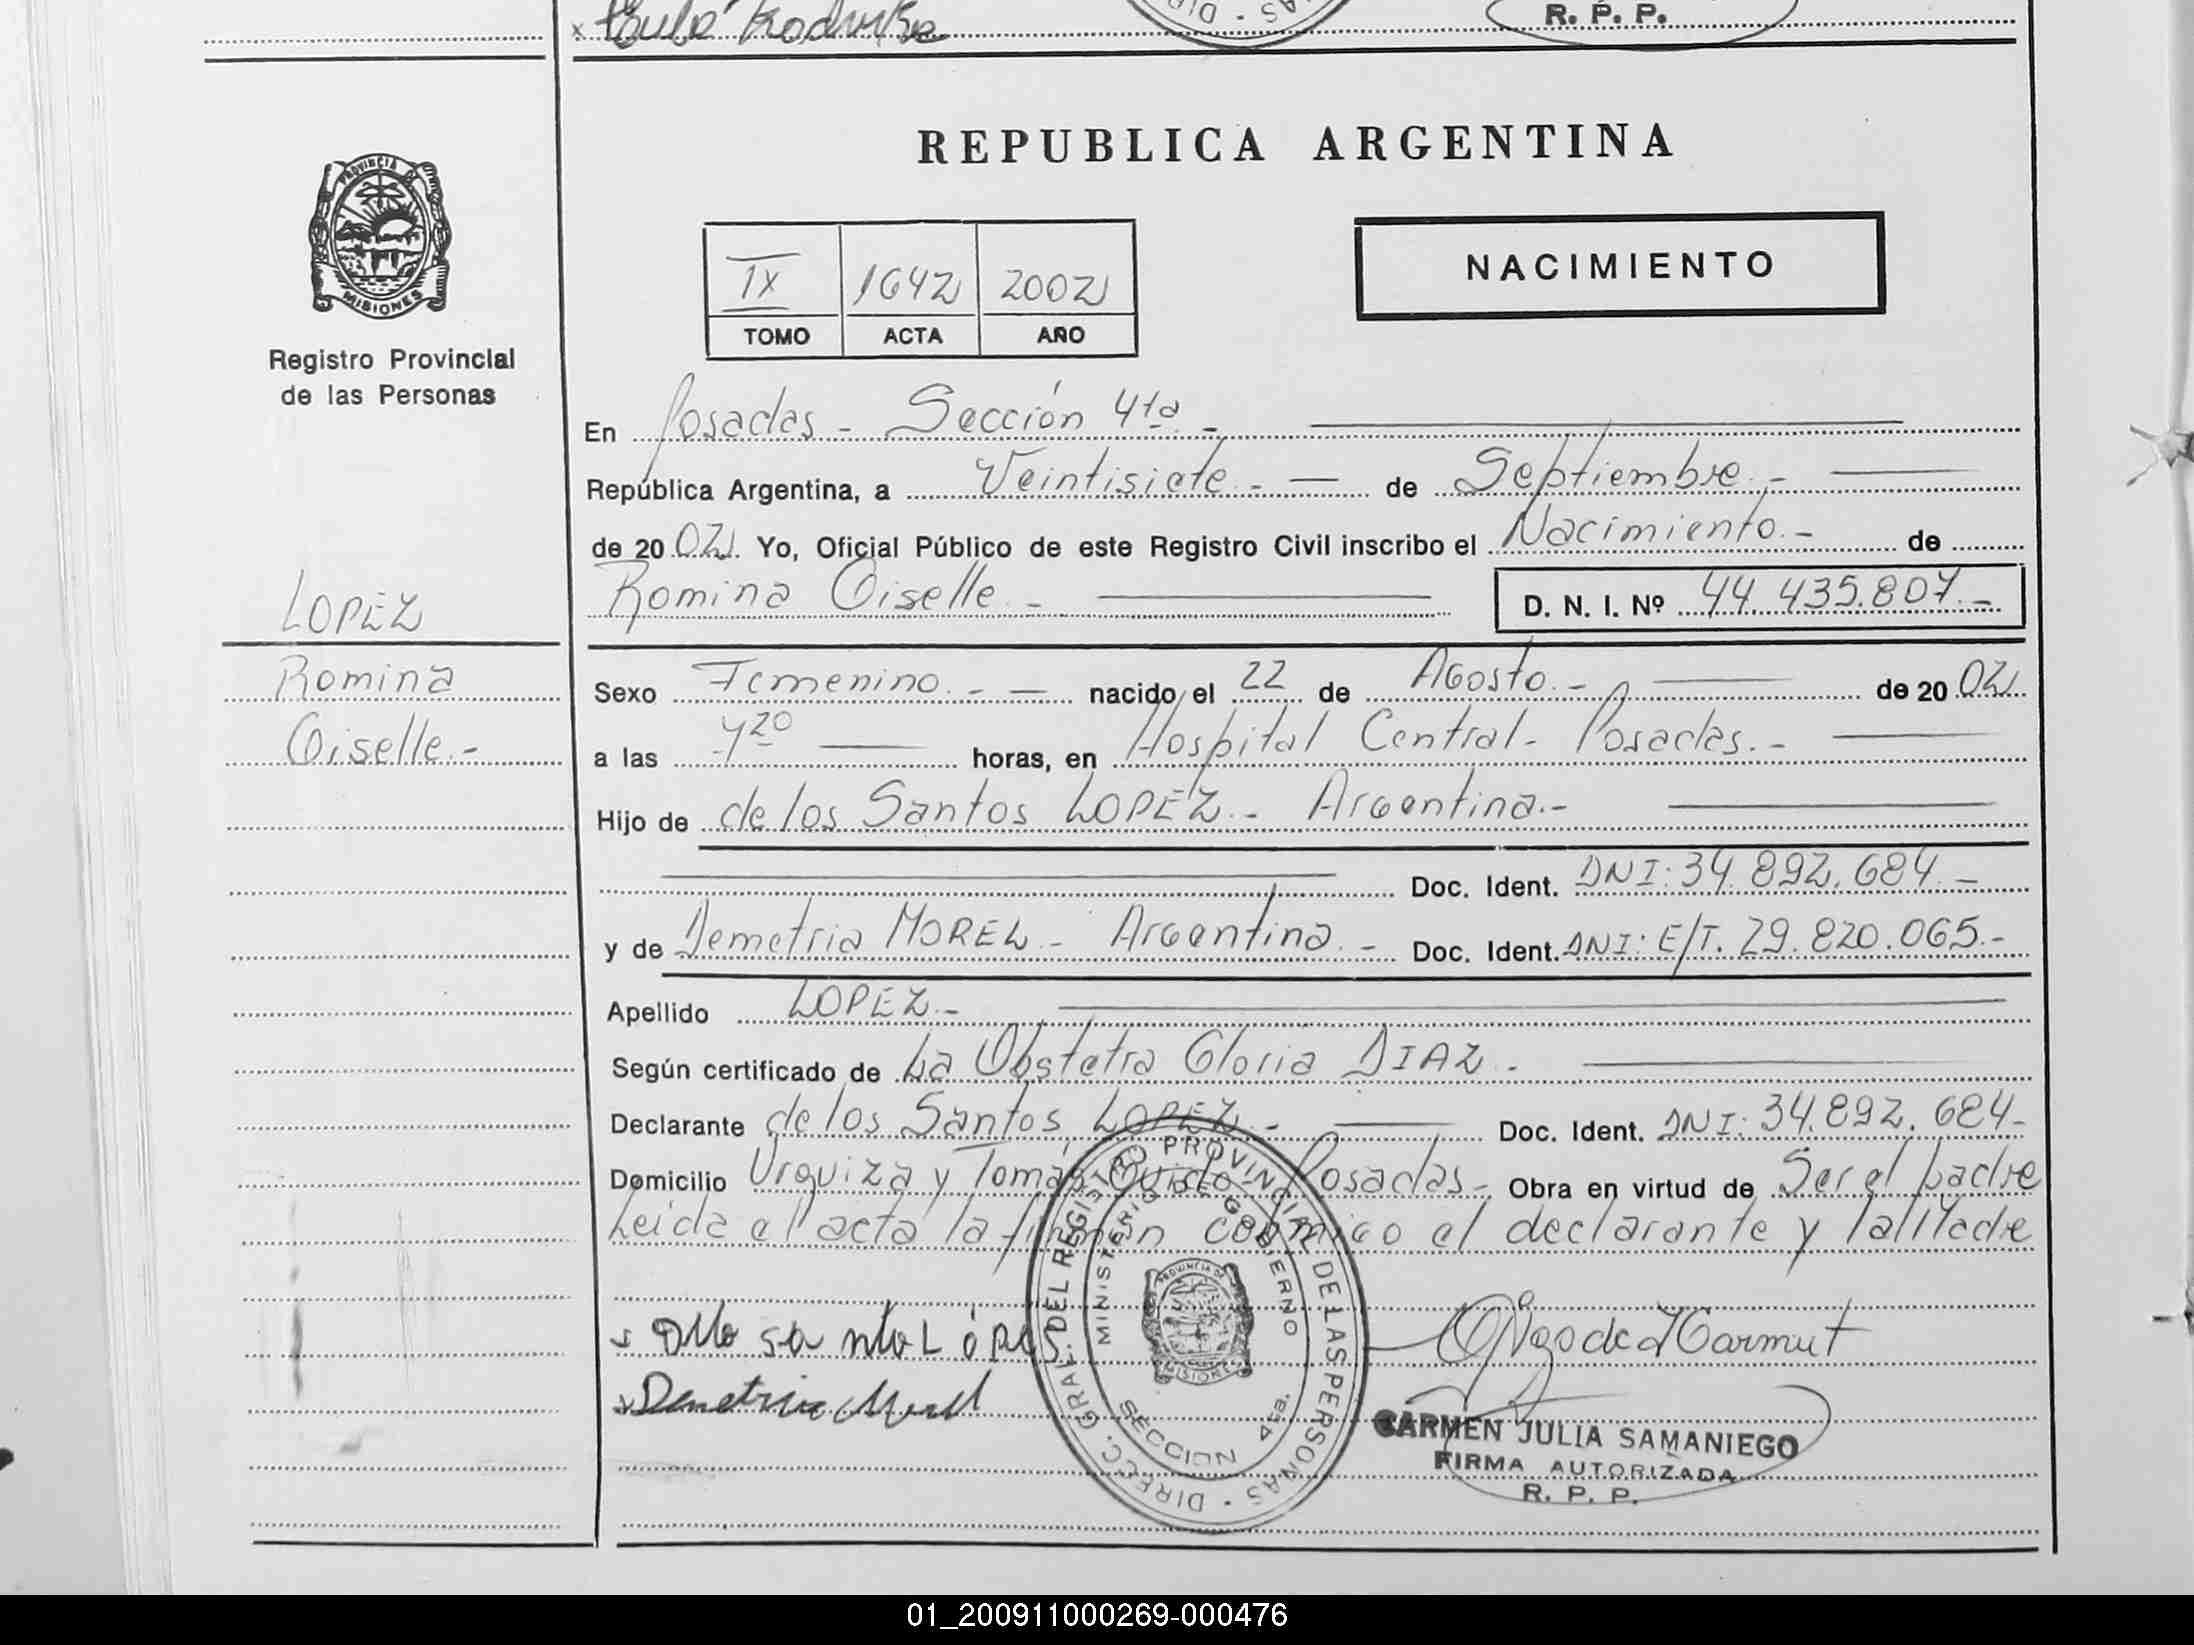 R. P. P.
PROVINCIA DE
MISIONES
Registro Provincial
de las Personas
LOPEZ
Romina
Giselle.-
REPUBLICA ARGENTINA
NACIMIENTO
IX 1642 2002
TOMO ACTA AÑO
En Posadas - Sección 4ta. -
República Argentina, a Veintisiete. - de Septiembre. -
de 20 02. Yo, Oficial Público de este Registro Civil inscribo el Nacimiento. - de
Romina Giselle. - D. N. I. Nº 44.435.807.-
Sexo Femenino. - nacido el 22 de Agosto. - de 20 02
a las 4 20 horas, en Hospital Central - Posadas. -
Hijo de de los Santos LOPEZ. - Argentina. -
Doc. Ident. DNI: 34.892.684. -
y de Demetria MOREL. - Argentina. - Doc. Ident. DNI: E/T. 29.820.065. -
Apellido LOPEZ. -
Según certificado de La Obstetra Gloria DIAZ. -
Declarante de los Santos LOPEZ. - Doc. Ident. DNI: 34.892.684 -
Domicilio Urquiza y Tomás Guido - Posadas - Obra en virtud de Ser el padre
Leida el acta la firman conmigo el declarante y la Madre
Demetria Morel
DIRECC. GRAL. DEL REGISTRO PROVINCIAL DE LAS PERSONAS
MINISTERIO DE GOBIERNO
PROVINCIA DE
MISIONES
SECCION 4ta.
CARMEN JULIA SAMANIEGO
FIRMA AUTORIZADA
R. P. P.
01_200911000269-000476